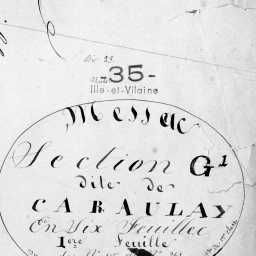 35-
Ille-et-Vilaine
Messac
Section G1
dite de
CARAULAY
En Six Feuilles
1ere Feuille